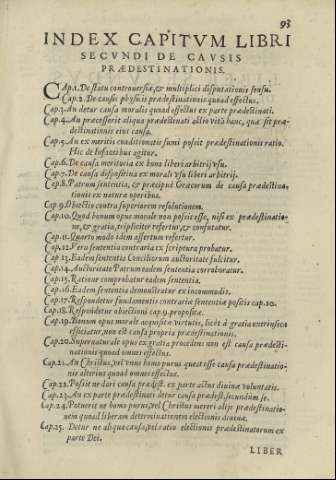 93
INDEX CAPITVM LIBRI
SECVNDI DE CAVSIS
PRÆDESTINATIONIS.
CAp.1. De statu controuersiæ, & multiplici disputationis sensu.
Cap.2. De causis physicis prædestinationis quoad effectus.
Cap.3. An detur causa moralis quoad effectus ex parte prædestinati.
Cap.4. An præcesserit aliqua prædestinati actio vitā hanc, quæ sit præ-
destinationis eius causa.
Cap.5. An ex meritis conditionatis sumi possit prædestinationis ratio.
Hic de Infantibus agitur.
Cap.6. De causa meritoria ex bono liberi arbitrij vsu.
Cap.7. De causa dispositiua ex morali vsu liberi arbitrij.
Cap.8. Patrum sententia, & præcipuè Græcorum de causa prædestina-
tionis ex natura operibus.
Cap.9. Obiectio contra superiorem resolutionem.
Cap.10. Quod bonum opus morale non possit esse, nisi ex prædestinatio-
ne, & gratia, tripliciter refertur, & confutatur.
Cap.11. Quarto modo idem assertum refertur.
Cap.12. Vera sententia contraria ex scriptura probatur.
Cap.13. Eadem sententia Conciliorum auctoritate fulcitur.
Cap.14. Auctoritate Patrum eadem sententia corroboratur.
Cap.15. Ratione comprobatur eadem sententia.
Cap.16. Eadem sententia demonstratur ex incommodis.
Cap.17. Respondetur fundamentis contrariæ sententiæ positis cap.10.
Cap.18. Respondetur obiectioni cap.9. propositæ.
Cap.19. Bonum opus moralè acquisitæ virtutis, licèt à gratia extrinsecè
efficiatur, non est causa propria prædestinationis.
Cap.20. Supernaturale opus ex gratia procedens non est causa prædesti-
nationis quoad omnes effectus.
Cap.21. An Christus, vel vnus homo purus queat esse causa prædestinatio-
nis alterius quoad omnes effectus.
Cap.22. Possit ne dari causa prædest. ex parte actus diuinæ voluntatis.
Cap.23. An ex parte prædestinati detur causa prædest. secundùm se.
Cap.24. Potuerit ne homo purus, vel Christus mereri alijs prædestinatio-
nem quoad liberam determinationem electionis diuinæ.
Cap.25. Detur ne aliqua causa, vel ratio electionis prædestinatorum ex
parte Dei.
LIBER